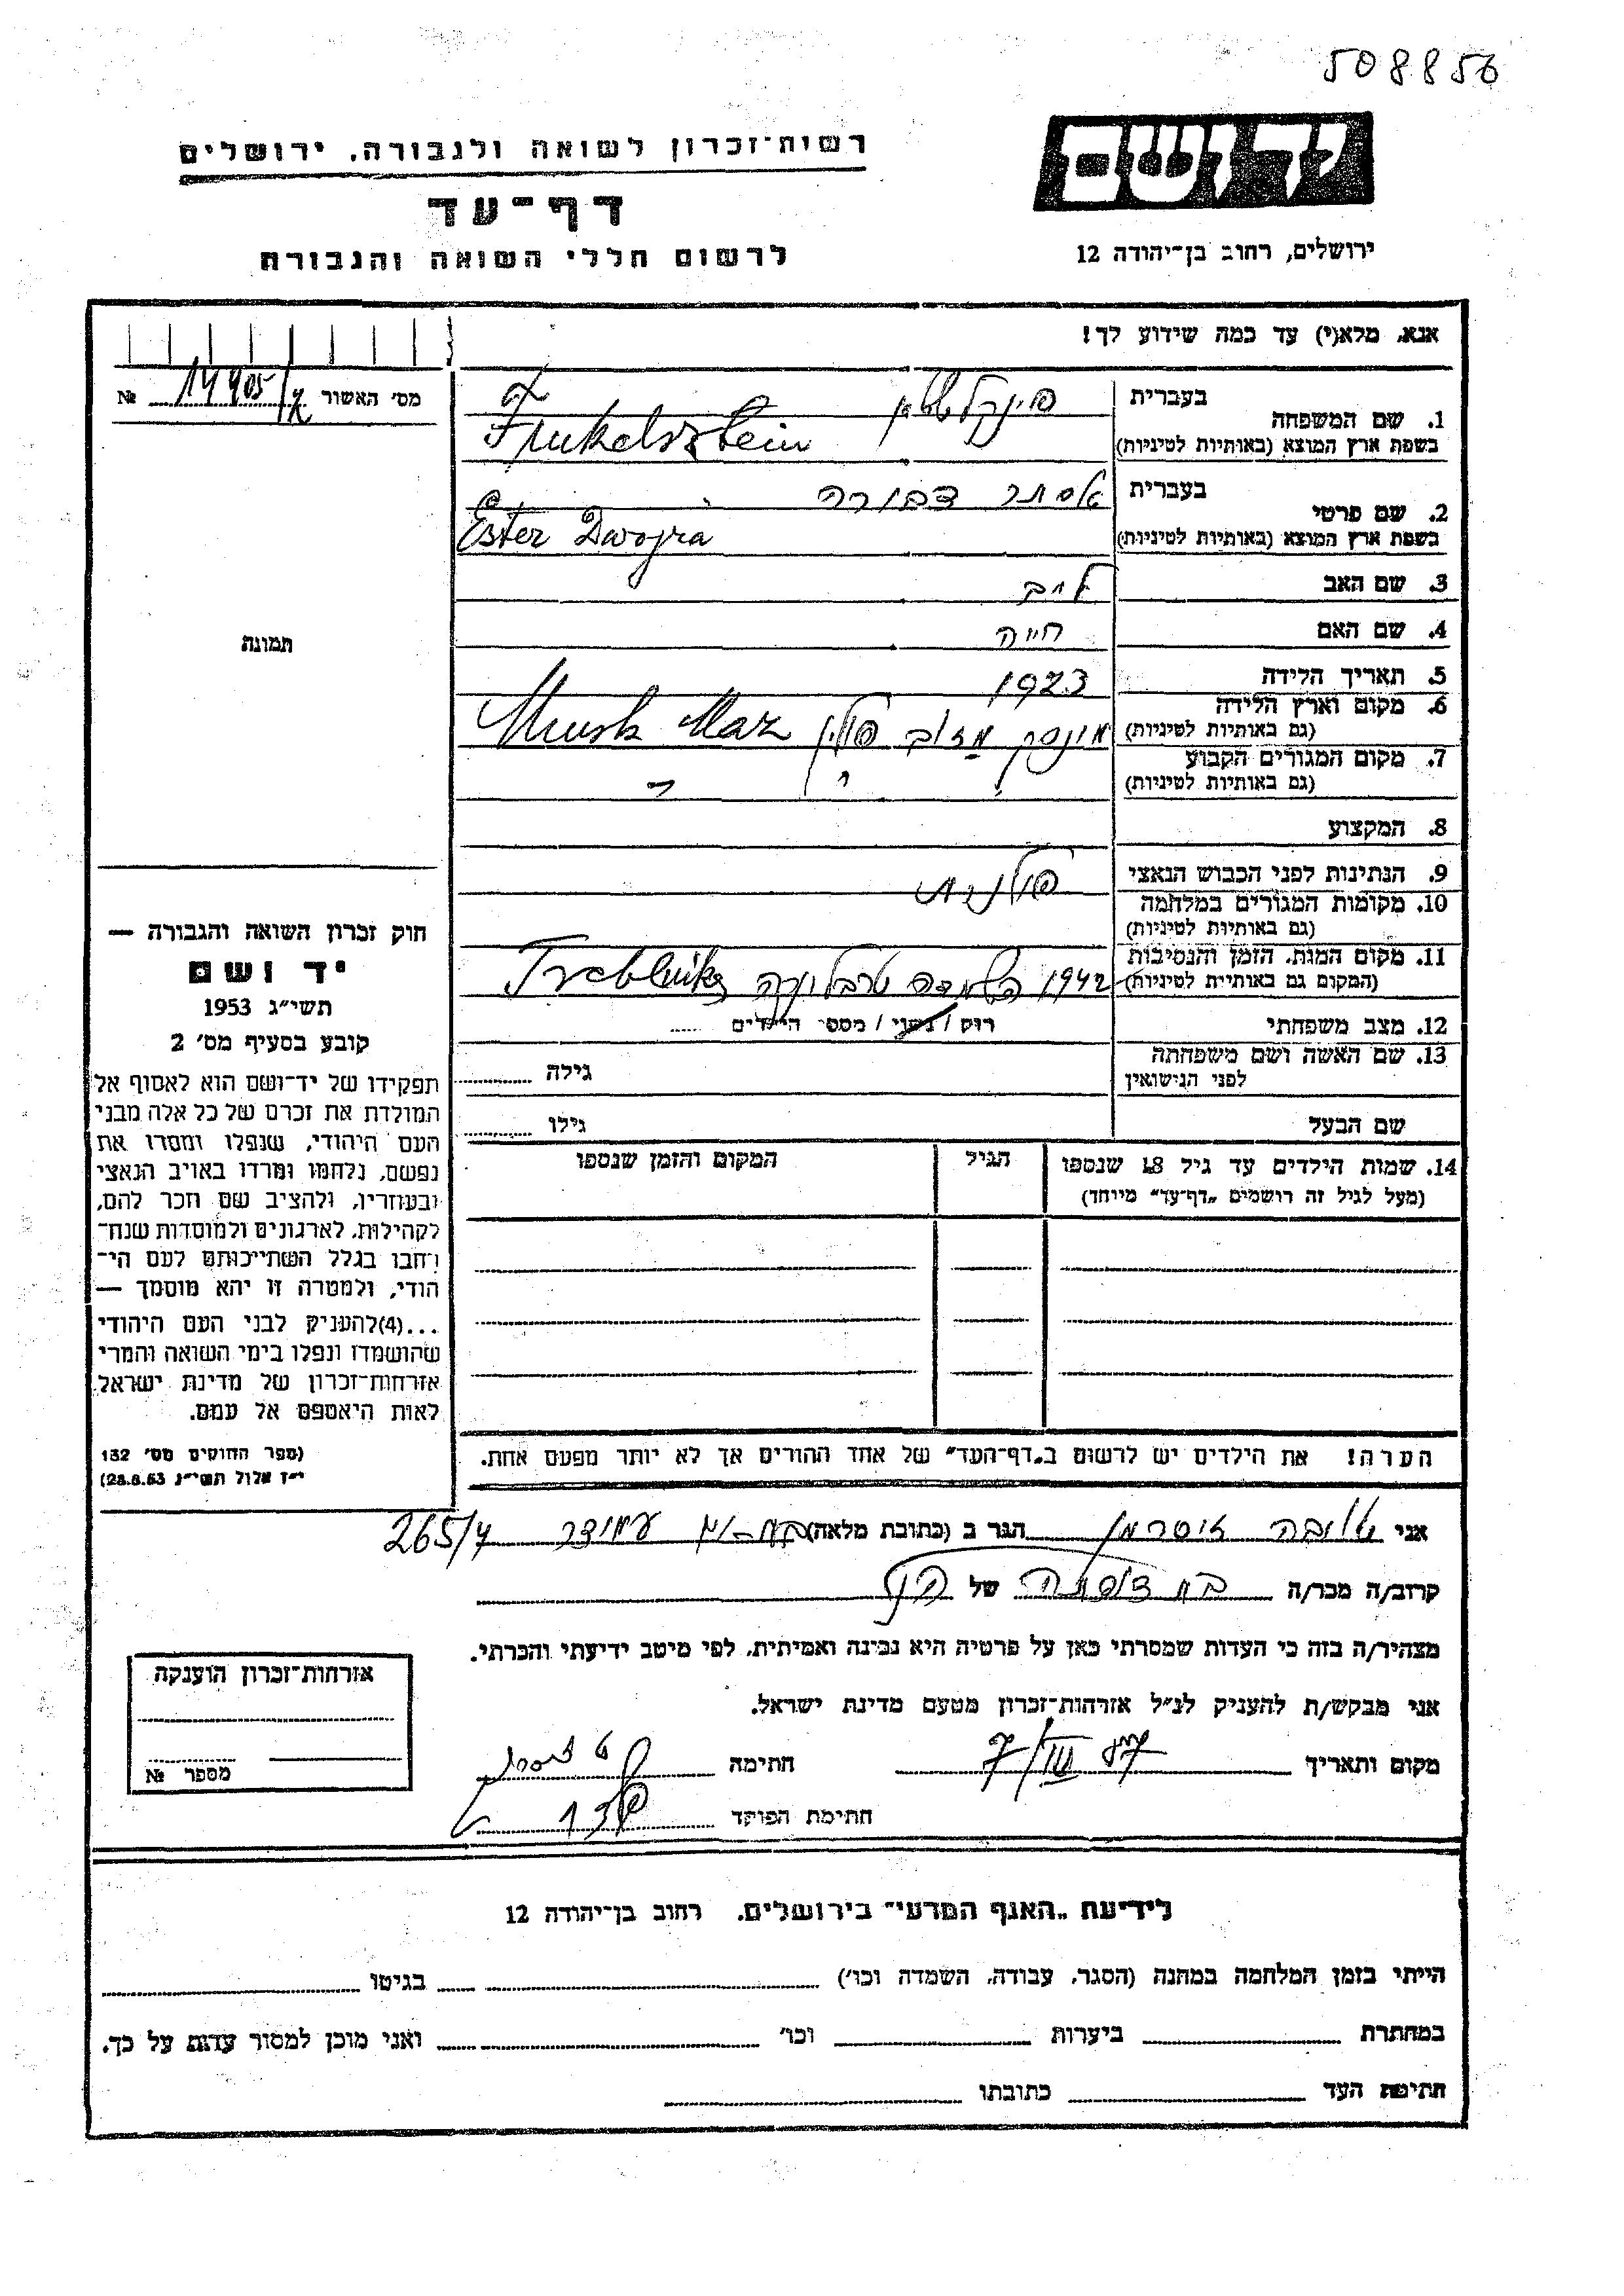 508856
יד ושם
רשות־זכרון לשואה ולגבורה, ירושלים
דף־עד
לרשום חללי השואה והגבורה
ירושלים, רחוב בן־יהודה 12
אנא, מלא(י) עד כמה שידוע לך!
מס׳ האשור 14905/ №
1. שם המשפחה
בעברית
פינקלשטיין
בשפת ארץ המוצא (באותיות לטיניות)
Finkelsztein
2. שם פרטי
בעברית
אסתר דבורה
בשפת ארץ המוצא (באותיות לטיניות)
Ester Dwojra
3. שם האב
לייב
4. שם האם
חיה
5. תאריך הלידה
1923
6. מקום וארץ הלידה
(גם באותיות לטיניות)
מינסק מזוב פולין Minsk Maz
7. מקום המגורים הקבוע
(גם באותיות לטיניות)
8. המקצוע
9. הנתינות לפני הכבוש הנאצי
פולנית
10. מקומות המגורים במלחמה
(גם באותיות לטיניות)
11. מקום המות, הזמן והנסיבות
(המקום גם באותיית לטיניות)
1942 השמדה טרבלינקה Treblinka
12. מצב משפחתי
רוק / נשוי / מספר הילדים
13. שם האשה ושם משפחתה
לפני הנישואין
גילה
שם הבעל
גילו
14. שמות הילדים עד גיל 18 שנספו
(מעל לגיל זה רושמים „דף־עד״ מיוחד)
הגיל
המקום והזמן שנספו
הערה! את הילדים יש לרשום ב„דף־העד״ של אחד ההורים אך לא יותר מפעם אחת.
תמונה
חוק זכרון השואה והגבורה —
יד ושם
תשי״ג 1953
קובע בסעיף מס׳ 2
תפקידו של יד־ושם הוא לאסוף אל
המולדת את זכרם של כל אלה מבני
העם היהודי, שנפלו ומסרו את
נפשם, נלחמו ומרדו באויב הנאצי
ובעוזריו, ולהציב שם וזכר להם,
לקהילות, לארגונים ולמוסדות שנח־
רחבו בגלל השתייכותם לעם הי־
הודי, ולמטרה זו יהא מוסמך —
...(4)להעניק לבני העם היהודי
שהושמדו ונפלו בימי השואה והמרי
אזרחות־זכרון של מדינת ישראל
לאות היאספם אל עמם.
(ספר החוקים מס׳ 132
י״ז אלול תשי״ג 28.8.53)
אני טובה זוסרמן הגר ב (כתובת מלאה) בת-ים עמידר 265/4
קרוב/ה מכר/ה בת דודתה של הנ״ל
מצהיר/ה בזה כי העדות שמסרתי כאן על פרטיה היא נכונה ואמיתית, לפי מיטב ידיעתי והכרתי.
אני מבקש/ת להעניק לנ״ל אזרחות־זכרון מטעם מדינת ישראל.
מקום ותאריך 7/III 57 חתימה
חתימת הפוקד
אזרחות־זכרון הוענקה
מספר №
לידיעת „האגף המדעי״ בירושלים, רחוב בן־יהודה 12
הייתי בזמן המלחמה במחנה (הסגר, עבודה, השמדה וכו׳) בגיטו
במחתרת ביערות וכו׳ ואני מוכן למסור עדות על כך.
חתימת העד כתובתו